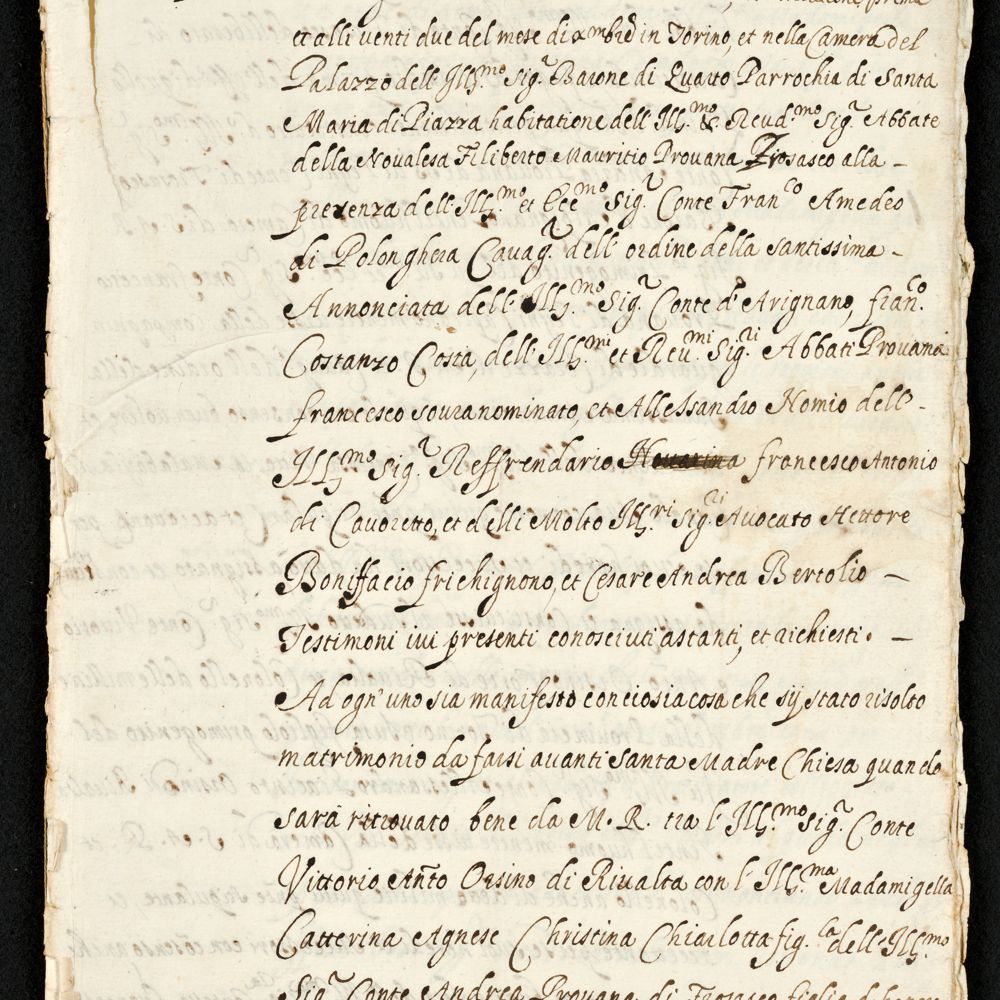 et alli venti due del mese di xmbre in Torino, et nella Camera del
Palazzo dell' Ill.mo Sig.r Barone di Quarto Parrochia di Santa
Maria di Piazza habitatione dell' Ill.mo & Reud.mo Sig.r Abbate
della Novalesa Filiberto Mauritio Provana Frosasco alla -
prezenza dell' Ill.mo et Ecc.mo Sig.r Conte Fran.co Amedeo
di Polonghera Cavag.r dell' ordine della santissima -
Annonciata dell' Ill.mo Sig.r Conte d' Arignano, fran.co
Costanzo Costa, dell' Ill.mi et Reu.mi Sig.ri Abbati Provana
francesco souranominato, et Allessandro Nomio dell' -
Ill.mo Sig.r Reffrendario francesco Antonio
di Cavoretto, et delli Molto Ill.ri Sig.ri Avocato Hettore
Boniffacio frichignono, et Cesare Andrea Bertolio -
Testimoni ivi presenti conosciuti astanti, et richiesti. -
Ad ogn' uno sia manifesto conciosiacosa che sij stato risolto
matrimonio da farsi avanti Santa Madre Chiesa quando
sarà ritrovato bene da M. R. tra l' Ill.mo Sig.r Conte
Vittorio Año Orsino di Rivalta con l' Ill.ma Madamigella
Catterina Agnese Christina Chiarlotta fig.la dell' Ill.mo
Sig.r Conte Andrea Provana di Frosasco